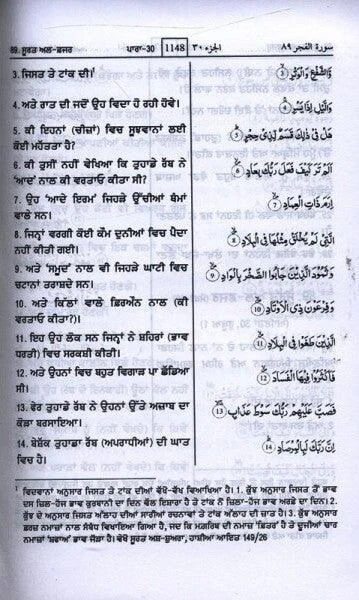 89. ਸੂਰਤ ਅਲ-ਫਜਰ ਪਾਰਾ-30 1148 الجزء ٣٠ سورة الفجر ٨٩
3. ਜਿਸਤ ਤੇ ਟਾਂਕ ਦੀ।¹
وَّالشَّفْعِ وَالْوَتْرِ 3
4. ਅਤੇ ਰਾਤ ਦੀ ਜਦੋਂ ਉਹ ਵਿਦਾ ਹੋ ਰਹੀ ਹੋਵੇ।
وَالَّيْلِ إِذَا يَسْرِ 4
5. ਕੀ ਇਹਨਾਂ (ਚੀਜ਼ਾਂ) ਵਿਚ ਸੂਝਵਾਨਾਂ ਲਈ
ਕੋਈ ਮਹੱਤਤਾ ਹੈ?
هَلْ فِي ذٰلِكَ قَسَمٌ لِّذِي حِجْرٍ 5
6. ਕੀ ਤੁਸੀਂ ਨਹੀਂ ਵੇਖਿਆ ਕਿ ਤੁਹਾਡੇ ਰੱਬ ਨੇ
'ਆਦ' ਨਾਲ ਕੀ ਵਰਤਾਓ ਕੀਤਾ ਸੀ?
أَلَمْ تَرَ كَيْفَ فَعَلَ رَبُّكَ بِعَادٍ 6
7. ਉਹ 'ਆਦੇ ਇਰਮ' ਜਿਹੜੇ ਉੱਚੀਆਂ ਥੰਮਾਂ
ਵਾਲੇ ਸਨ।
إِرَمَ ذَاتِ الْعِمَادِ 7
8. ਜਿਨ੍ਹਾਂ ਵਰਗੀ ਕੋਈ ਕੌਮ ਦੁਨੀਆਂ ਵਿਚ ਪੈਦਾ
ਨਹੀਂ ਕੀਤੀ ਗਈ।
الَّتِي لَمْ يُخْلَقْ مِثْلُهَا فِي الْبِلَادِ 8
9. ਅਤੇ 'ਸਮੂਦ' ਨਾਲ ਵੀ ਜਿਹੜੇ ਘਾਟੀ ਵਿਚ
ਚਟਾਨਾਂ ਤਰਾਸ਼ਦੇ ਸਨ।
وَثَمُودَ الَّذِينَ جَابُوا الصَّخْرَ بِالْوَادِ 9
10. ਅਤੇ ਕਿੱਲਾਂ ਵਾਲੇ ਫ਼ਿਰਔਨ ਨਾਲ (ਕੀ
ਵਰਤਾਓ ਕੀਤਾ?)।
وَفِرْعَوْنَ ذِي الْأَوْتَادِ 10
11. ਇਹ ਉਹ ਲੋਕ ਸਨ ਜਿਨ੍ਹਾਂ ਨੇ ਸ਼ਹਿਰਾਂ (ਭਾਵ
ਧਰਤੀ) ਵਿਚ ਸਰਕਸ਼ੀ ਕੀਤੀ।
الَّذِينَ طَغَوْا فِي الْبِلَادِ 11
12. ਅਤੇ ਉਹਨਾਂ ਵਿਚ ਬਹੁਤ ਵਿਗਾੜ ਪਾ ਛੱਡਿਆ
ਸੀ।
فَأَكْثَرُوا فِيهَا الْفَسَادَ 12
13. ਫੇਰ ਤੁਹਾਡੇ ਰੱਬ ਨੇ ਉਹਨਾਂ ਉੱਤੇ ਅਜ਼ਾਬ ਦਾ
ਕੋੜਾ ਬਰਸਾਇਆ।
فَصَبَّ عَلَيْهِمْ رَبُّكَ سَوْطَ عَذَابٍ 13
14. ਬੇਸ਼ੱਕ ਤੁਹਾਡਾ ਰੱਬ (ਅਪਰਾਧੀਆਂ) ਦੀ ਘਾਤ
ਵਿਚ ਹੈ।
إِنَّ رَبَّكَ لَبِالْمِرْصَادِ 14
¹ ਵਿਦਵਾਨਾਂ ਅਨੁਸਾਰ ਜਿਸਤ ਤੇ ਟਾਂਕ ਦੀਆਂ ਵੱਖੋ-ਵੱਖ ਵਿਆਖਿਆ ਹੈ। 1. ਕੁੱਝ ਅਨੁਸਾਰ ਜਿਸਤ ਤੋਂ ਭਾਵ
ਦਸ ਜ਼ਿਲ-ਹੱਜ ਭਾਵ ਕੁਰਬਾਨੀ ਦਾ ਦਿਨ ਵੱਲ ਇਸ਼ਾਰਾ ਹੈ ਤੇ ਟਾਂਕ ਨੌਂ ਜ਼ਿਲਾ-ਹੱਜ ਭਾਵ ਅਰਫ਼ੇ ਦਾ ਦਿਨ। 2.
ਕੁੱਝ ਦੇ ਅਨੁਸਾਰ ਜਿਸਤ ਅੱਲਾਹ ਦੀਆਂ ਸਾਰੀਆਂ ਰਚਨਾਵਾਂ ਤੇ ਟਾਂਕ ਅੱਲਾਹ ਦੀ ਜ਼ਾਤ ਹੈ। 3. ਕੁੱਝ ਅਨੁਸਾਰ
ਫ਼ਰਜ਼ ਨਮਾਜ਼ਾਂ ਨਾਲ ਸੰਬੰਧ ਵਿਖਾਇਆ ਗਿਆ ਹੈ, ਜਦ ਕਿ ਮਗਰਿਬ ਦੀ ਨਮਾਜ਼ 'ਵਿਤਰ' ਹੈ ਤੇ ਦੂਜੀਆਂ ਚਾਰ
ਨਮਾਜ਼ਾਂ 'ਸ਼ਫਾਅ' ਭਾਵ ਜੋੜਾ ਹੈ। ਵੇਖੋ ਸੂਰਤ ਅਸ਼-ਸ਼ੁਅਰਾ, ਹਾਸ਼ੀਆ ਆਇਤ 149/26